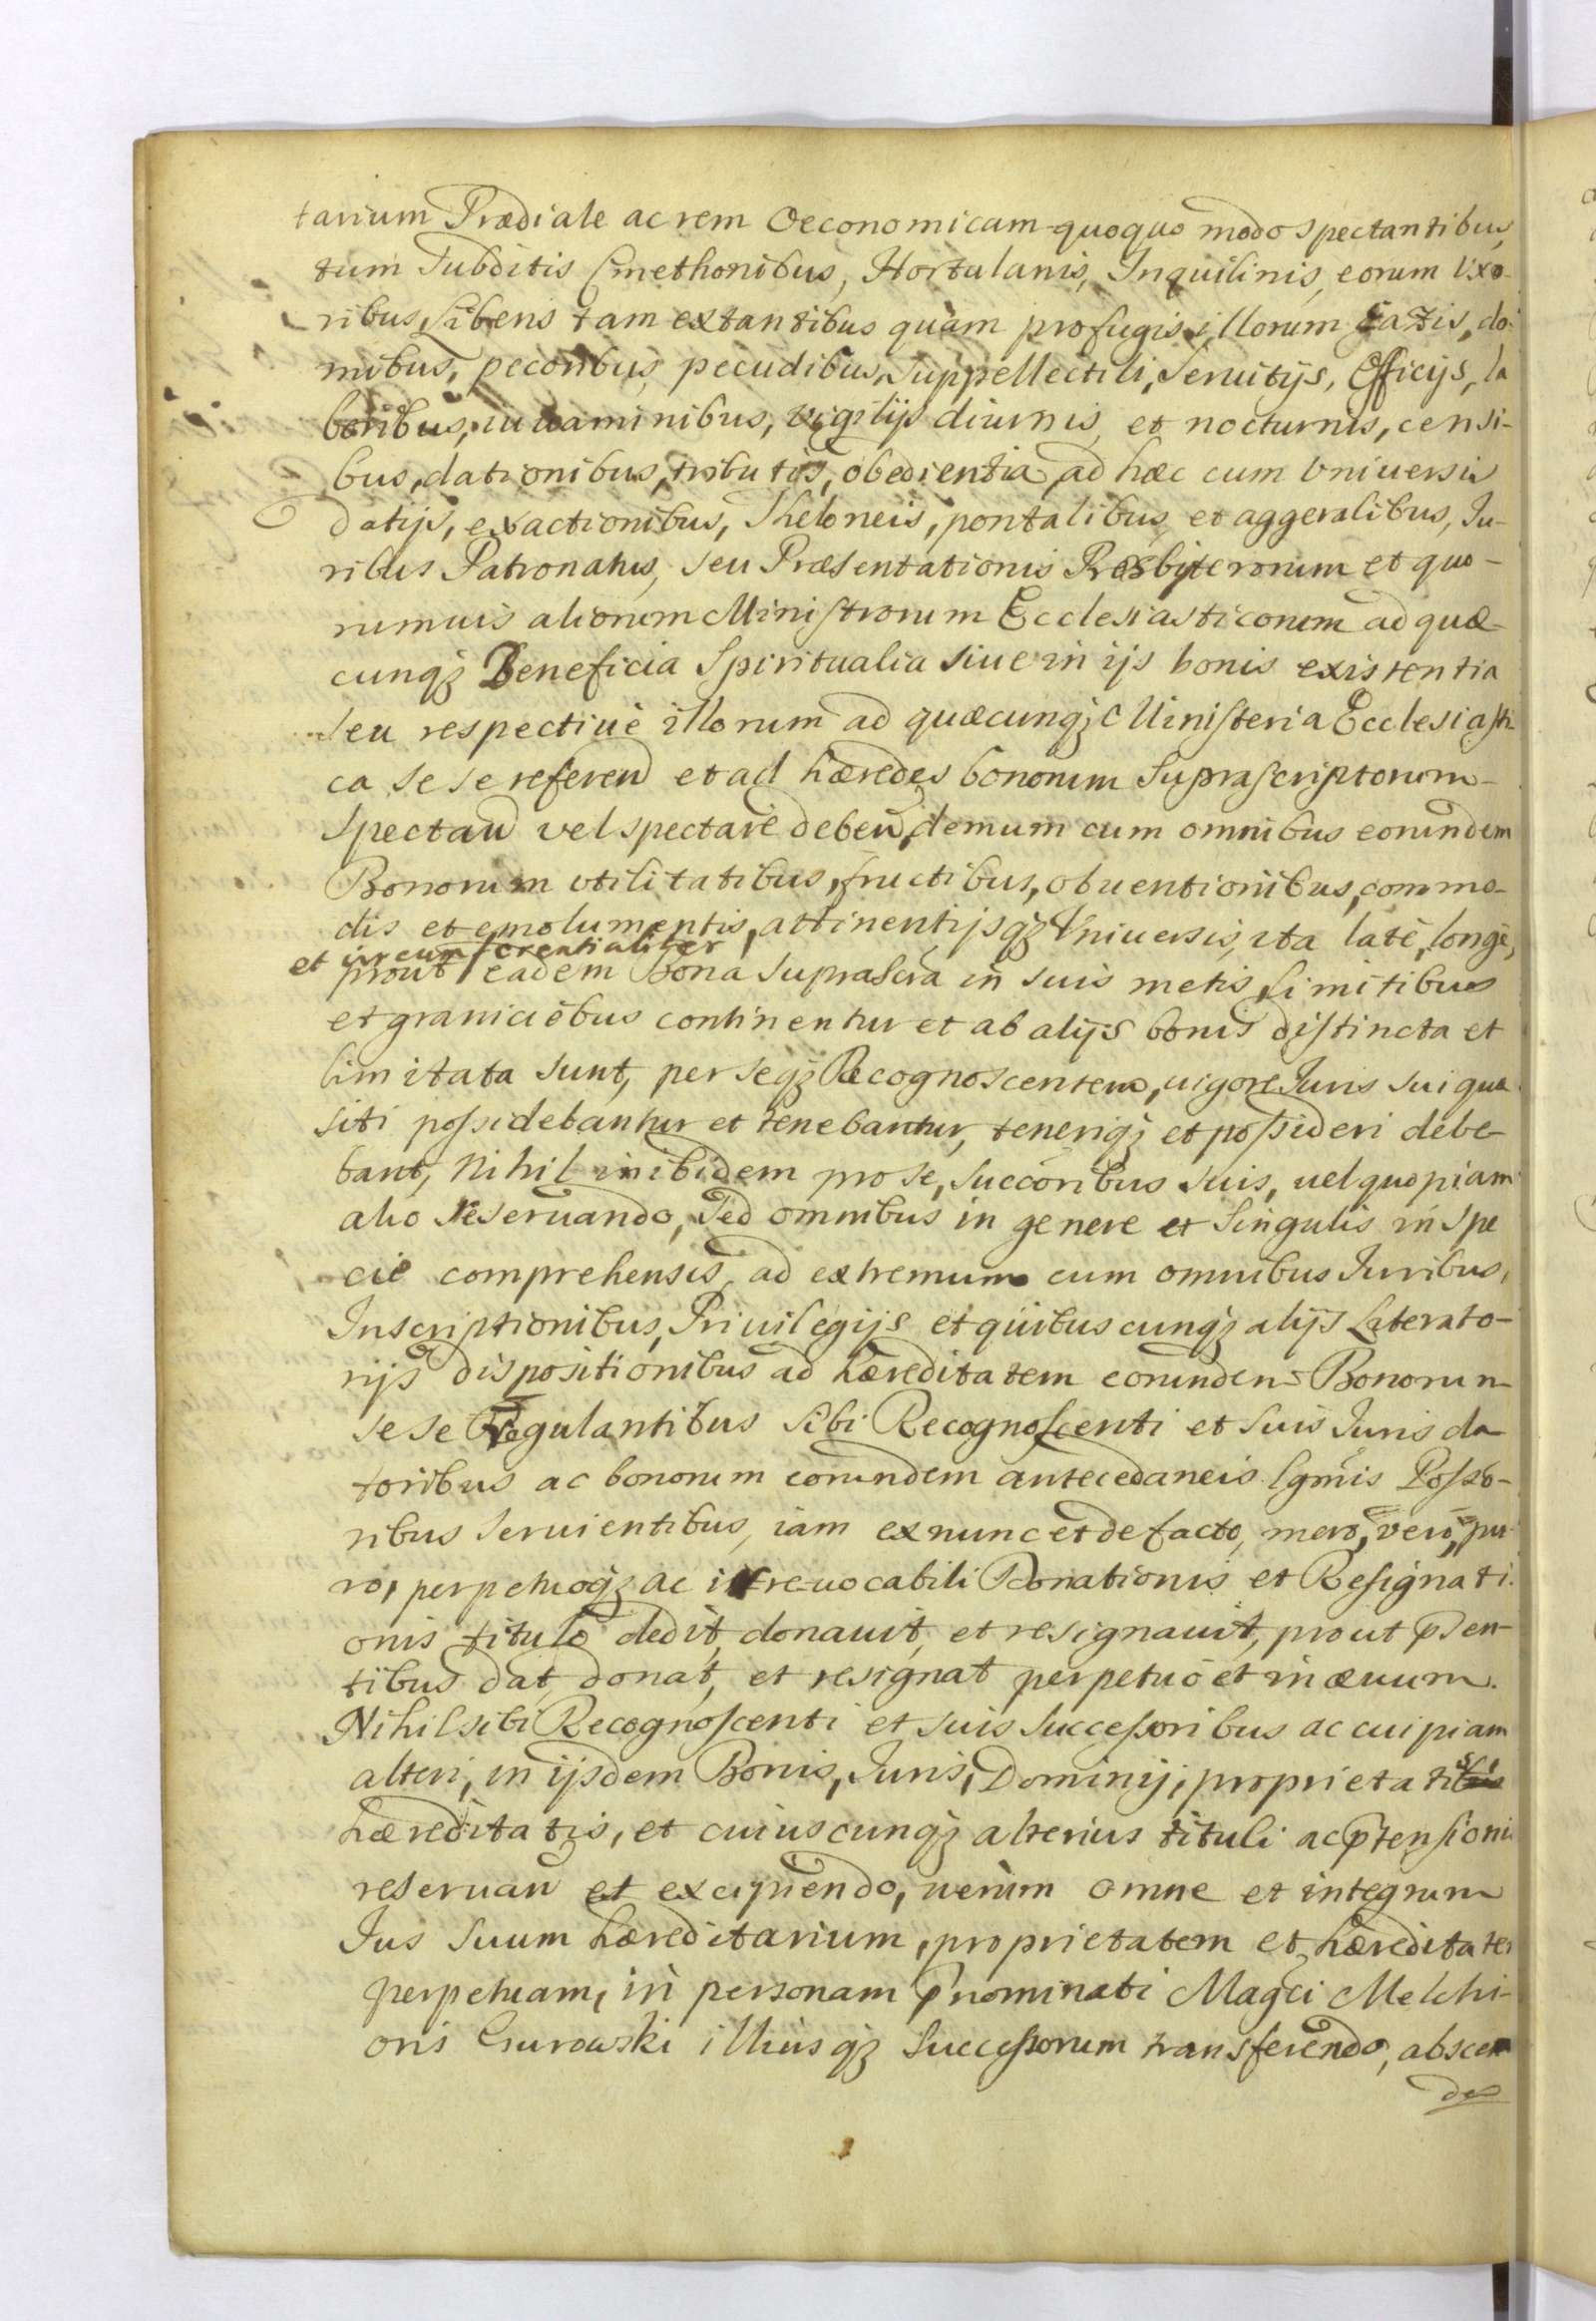 tarium Prædiale ac rem Oeconomicam quoquo modo spectantibus,
tum Subditis Cmethonibus, Hortulanis, Inquilinis, eorum Vxo-
ribus, Liberis tam extantibus quàm profugis, illorum Gazis, do-
mibus, pecoribus, pecudibus, Suppellectili, Seruitijs, Officijs, la
boribus, iuuaminibus, vigilijs diurnis, et nocturnis, censi-
bus, dationibus, tributis, obedientia, ad hæc cum Vniuersis
datijs, exactionibus, Theloneis, pontalibus, et aggeralibus, Iu-
ribus Patronatus, seu Præsentationis Presbyterorum et quo-
rumuis aliorum Ministrorum Ecclesiasticorum ad quæ-
cunq3 Beneficia Spiritualia siue in ijs bonis existentia
seu respectiuè illorum ad quæcunq3 Ministeria Ecclesiasti-
ca se se referen et ad hæredes bonorum Suprascriptorum
Spectan vel spectare deben, demum cum omnibus eorundem
Bonorum vtilitatibus, fructibus, obuentionibus, commo-
dis et emolumentis, attinentijsq3 Vniuersis, ita latè, longè,
et circumferentialiter
prout eadem Bona suprascra in suis metis, limitibus
et graniciebus continentur et ab alijs bonis distincta et
limitata sunt, per seq3 Recognoscentem, uigore Iuris sui quæ
siti possidebantur et tenebantur, teneriq3 et possideri debe-
bant, Nihil inibidem pro se, succoribus suis, uel quopiam
alio reseruando, Sed omnibus in genere et Singulis in spe
cie comprehensis, ad extremum cum omnibus Iuribus,
Inscriptionibus, Priuilegijs et quibuscunq3 alijs Laterato-
rijs dispositionibus ad hæreditatem eorundem Bonorum
se se regulantibus sibi Recognoscenti et suis Iuris da
toribus ac bonorum eorundem antecedaneis lgmis Posso-
ribus seruientibus, iam ex nunc et de facto, mero, vero, pu-
ro, perpetuoq3 ac irreuocabili Donationis et Resignati-
onis titulo dedit, donauit, et resignauit, prout pñsen-
tibus dat, donat, et resignat perpetuò et in æuum.
Nihil sibi Recognoscenti et suis successoribus ac cuipiam
alteri, in ijsdem Bonis, Iuris, Dominij, proprietatis
hæreditatis, et cuiuscunq3 alterius tituli ac ptensionis
reseruan et excipiendo, uerùm omne et integrum
Ius suum hæreditarium, proprietatem et hæreditatem
perpetuam, in personam pnominati Magci Melchi-
oris Gurowski illiusq3 Successorum transferendo, abscen
des